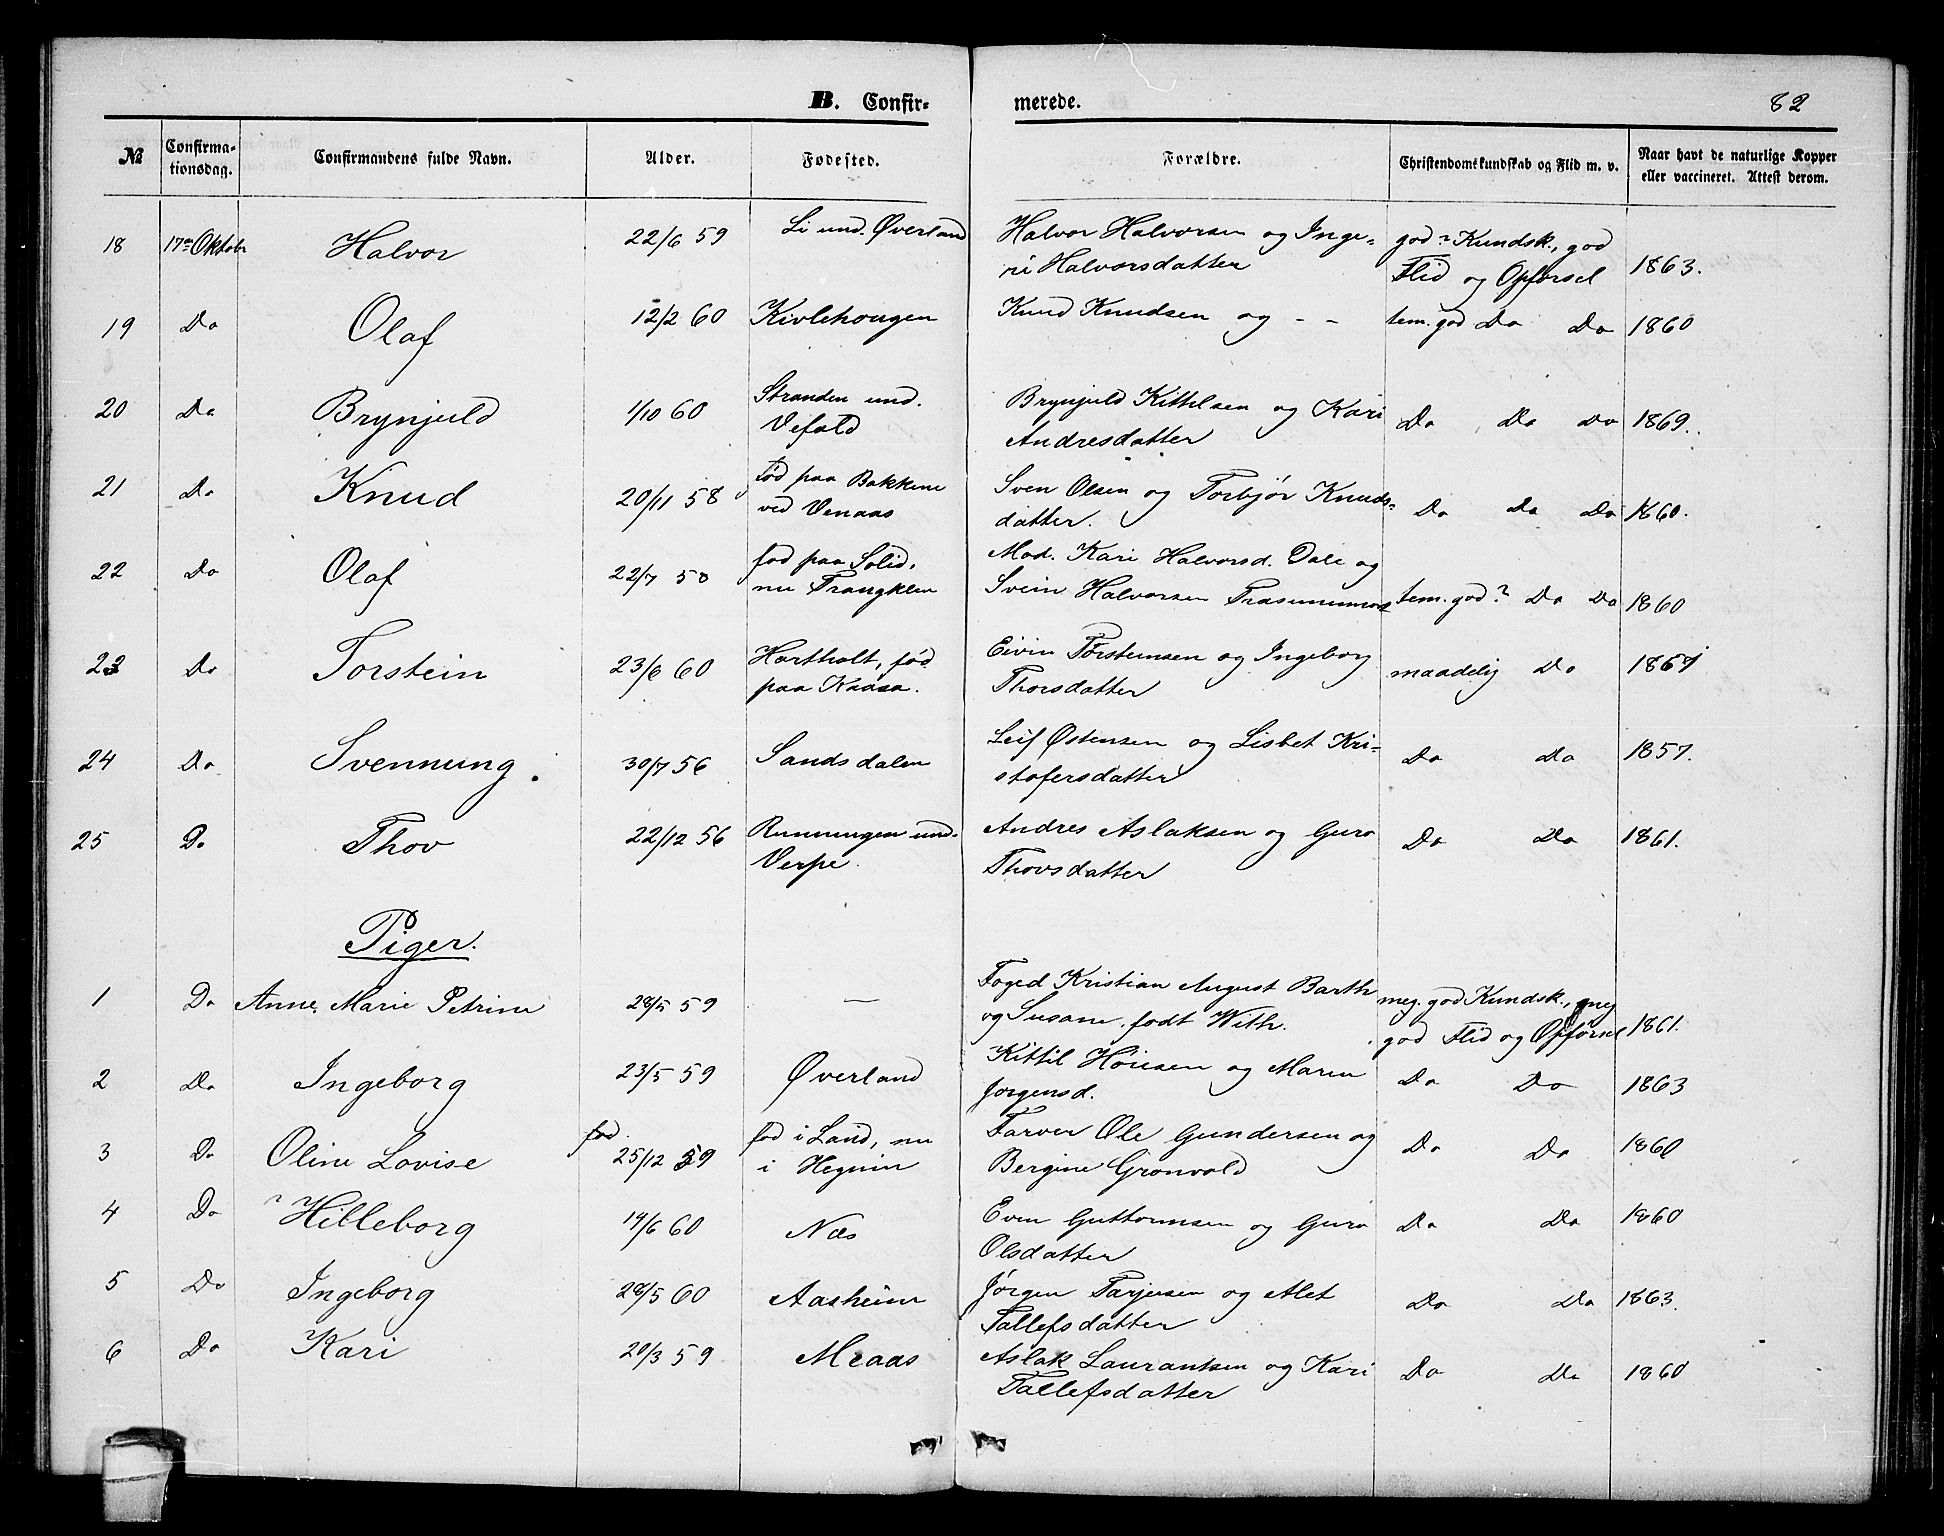 B. Confir-
merede.
82
№
Confirma-
tionsdag.
Confirmandens fulde Navn.
Alder.
Fødested.
Forældre.
Christendomskundskab og Flid m. v.
Naar havt de naturlige Kopper
eller vaccineret. Attest derom.
18 17de Oktobr Halvor 22/6 59 Li und. Øverland Halvor Halvorsen og Inge- god? Kundsk., god
ri Halvorsdatter Flid og Opførsel 1863.
19 Do Olaf 12/2 60 Kivlehougen Knud Knudsen og - - tem. god Do Do 1860
20 Do Brynjuld 1/10 60 Stranden und. Brynjuld Kittilsen og Kari Do Do Do 1869.
Vefald Andresdatter
21 Do Knud 20/11 58 Fød paa Bakkene Sven Olsen og Torbjør Knuds- Do Do Do 1860.
ved Venaas datter.
22 Do Olaf 22/7 58 fød paa Solid, Mod. Kari Halvorsd. Dale og
nu Trangklev Svein Halvorsen tem. god? Do Do 1860
23 Do Torstein 23/6 60 Hartholt, fød Eivin Torsteinsen og Ingeborg maadelig Do 1861
paa Kaasa. Thorsdatter
24 Do Svennung. 30/7 56 Sandsdalen Leif Østensen og Lisbet Kri- Do Do 1857.
stofersdatter
25 Do Thov 22/12 56 Runningen und. Andres Aslaksen og Guro Do Do 1861.
Verpe. Thovsdatter
Piger.
1 Do Anne Marie Petrine 28/5 59 — Foged Kristian August Barth meg. god Kundsk., meg
og Susane, født With. god Flid og Opførsel 1861.
2 Do Ingeborg 23/5 59 Øverland Kittil Høiesen og Maren Do Do 1863
Jørgensd.
3 Do Oline Lovise fød fød i Land, nu Farver Ole Gundersen og Do Do 1860
25/12 59 i Hegnin Bergine Grønvold
4 Do Hilleborg 14/6 60 Næs Even Guttormsen og Guro Do Do 1860
Olsdatter
5 Do Ingeborg 28/5 60 Aasheim Jørgen Tarjeisen og Alet Do Do 1863.
Tallefsdatter
6 Do Kari 20/3 59 Meaas Aslak Laurantsen og Kari Do Do 1860
Tallefsdatter